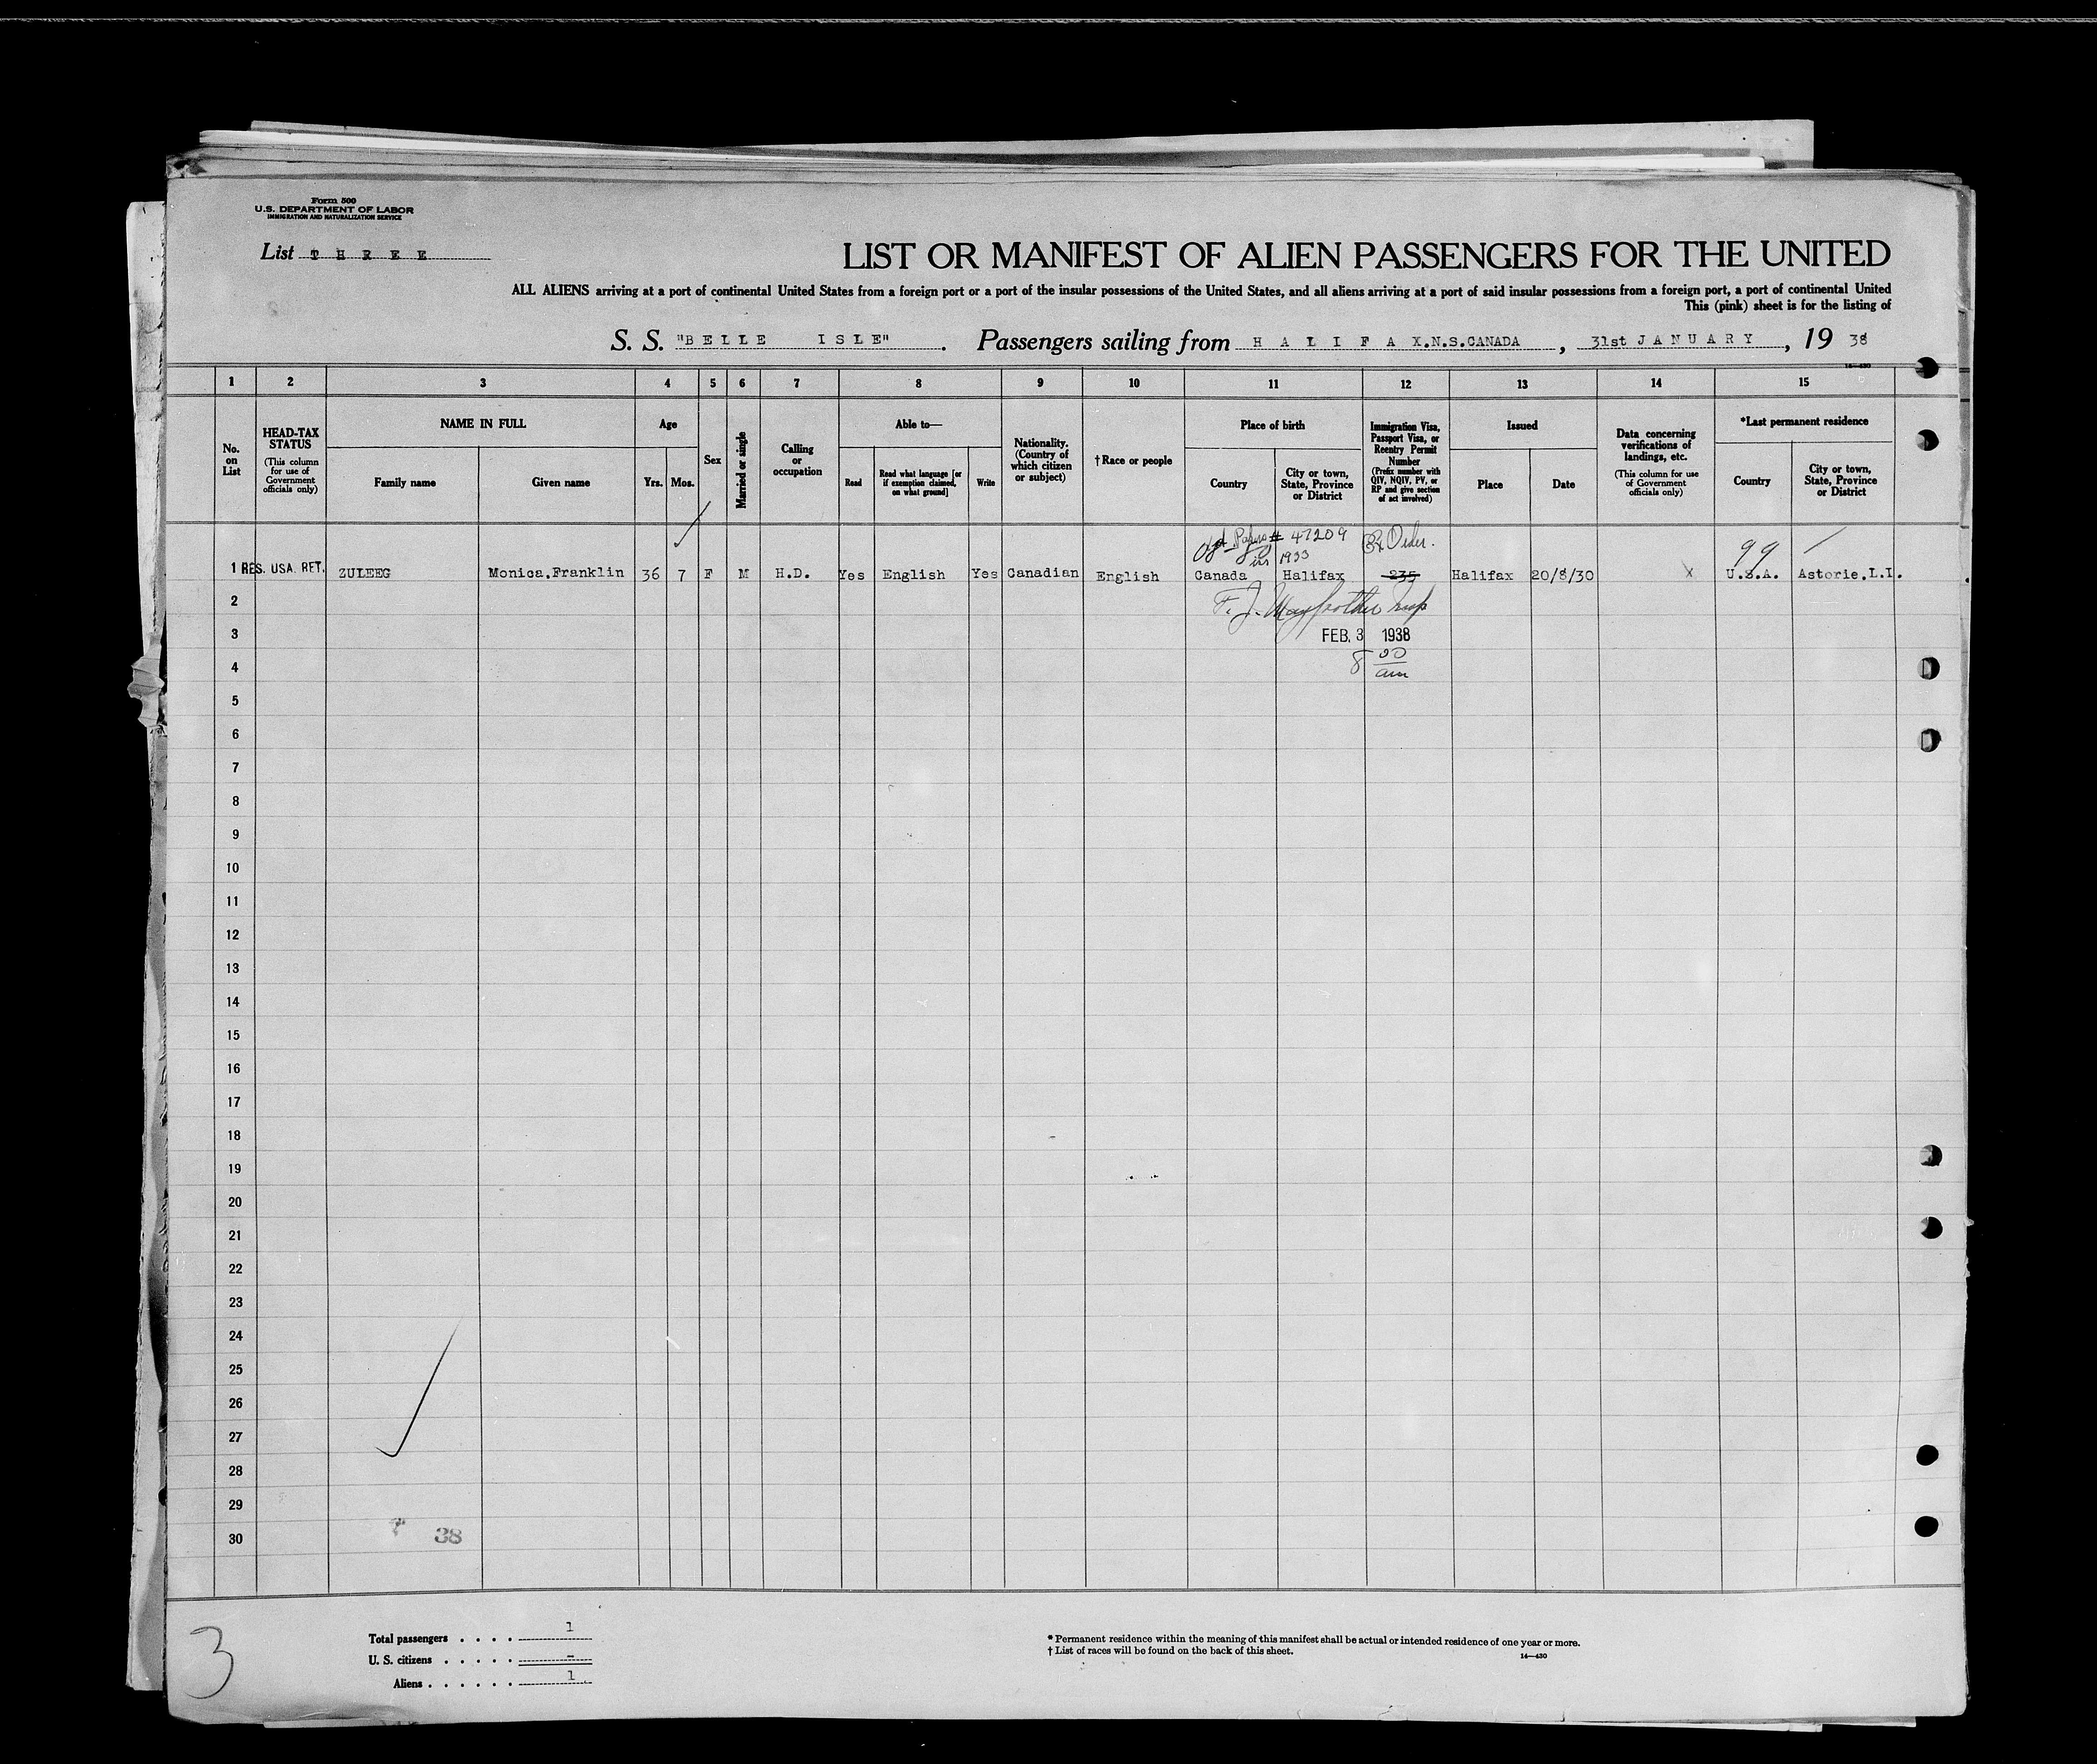 Form 500
U.S. DEPARTMENT OF LABOR
IMMIGRATION AND NATURALIZATION SERVICE
List T H R E E
LIST OR MANIFEST OF ALIEN PASSENGERS FOR THE UNITED
ALL ALIENS arriving at a port of continental United States from a foreign port or a port of the insular possessions of the United States, and all aliens arriving at a port of said insular possessions from a foreign port, a port of continental United
This (pink) sheet is for the listing of
S. S. "B E L L E I S L E". Passengers sailing from H A L I F A X.N.S.CANADA, 31st J A N U A R Y, 19 38
14—430
1 2 3 4 5 6 7 8 9 10 11 12 13 14 15
No. on List
HEAD-TAX STATUS
(This column for use of Government officials only)
NAME IN FULL
Family name
Given name
Age
Yrs. Mos.
Sex
Married or single
Calling or occupation
Able to—
Read
Read what language [or if exemption claimed, on what ground]
Write
Nationality. (Country of which citizen or subject)
†Race or people
Place of birth
Country
City or town, State, Province or District
Immigration Visa, Passport Visa, or Reentry Permit Number
(Prefix number with QIV, NQIV, PV, or RP and give section of act involved)
Issued
Place
Date
Data concerning verifications of landings, etc.
(This column for use of Government officials only)
*Last permanent residence
Country
City or town, State, Province or District
# 47209
Order.
1933
99
1 RES. USA. RET. ZULEEG Monica.Franklin 36 7 F M H.D. Yes English Yes Canadian English Canada Halifax 235 Halifax 20/8/30 X U.S.A. Astorie.L.I.
2
F. J.
3
FEB. 3 1938
4
8 00 am
5
6
7
8
9
10
11
12
13
14
15
16
17
18
19
20
21
22
23
24
25
26
27
28
29
30
38
3
Total passengers . . . . 1
U. S. citizens . . . . . -
Aliens . . . . . . 1
* Permanent residence within the meaning of this manifest shall be actual or intended residence of one year or more.
† List of races will be found on the back of this sheet.
14—430